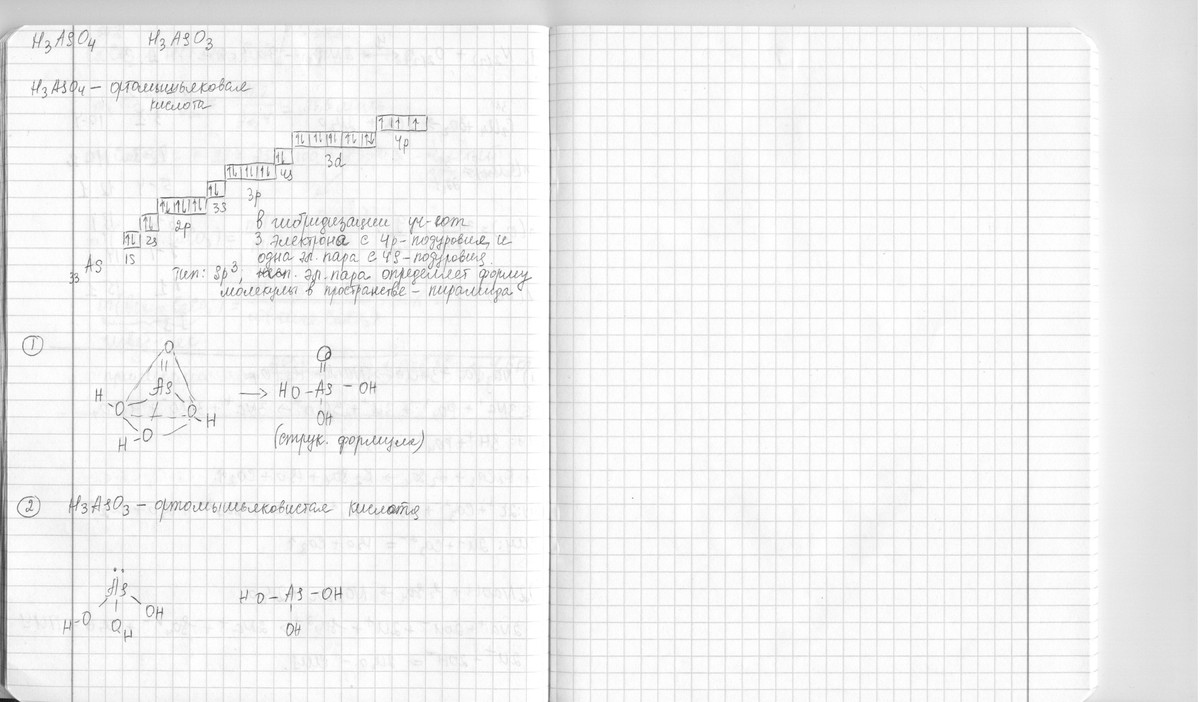 H₃AsO₄ H₃AsO₃
H₃AsO₄ – ортомышьяковая
кислота
4p
3d
4s
3p
3s
2p
2s
1s
₃₃As
в гибридизации уч-ют
3 электрона с 4p-подуровня, и
одна эл. пара с 4s-подуровня.
Тип: sp³, эл. пара определяет форму
молекулы в пространстве – пирамида
①
O
||
As
H O O H
H-O
→
O
||
HO – As – OH
OH
(струк. формула)
② H₃AsO₃ – ортомышьяковистая кислота
As
H-O O OH
H
HO – As – OH
OH